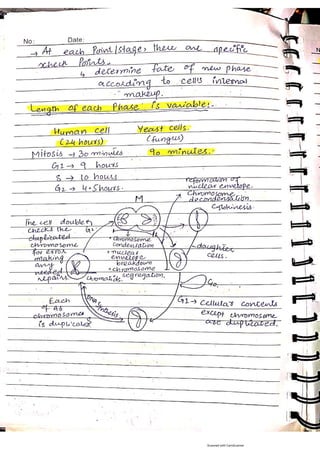 No:
Date:
→ At each Point/stage, there are specific
check Points.
↳ determine fate of new phase
according to cells internal
makeup.
Length of each Phase is variable:-
Human cell
(24 hours)
Yeast cells.
(fungus)
Mitosis → 30 minutes
90 minutes.
G1 → 9 hours
S → 10 hours
G2 → 4.5 hours.
reformation of
nuclear envelope.
Chromosome
decondensation.
Cytokinesis
M
The cell doubles
checks the
duplicated
chromosome
for error
making
any
needed
repairs
G2
• chromosome
condensation
• nuclear
envelope
breakdown
• chromosome
segregation.
daughter
cells.
G0.
chromatids.
Each
of 46
chromosomes
is duplicated
S
G1 → Cellular contents
except chromosome
are duplicated.
Scanned with CamScanner